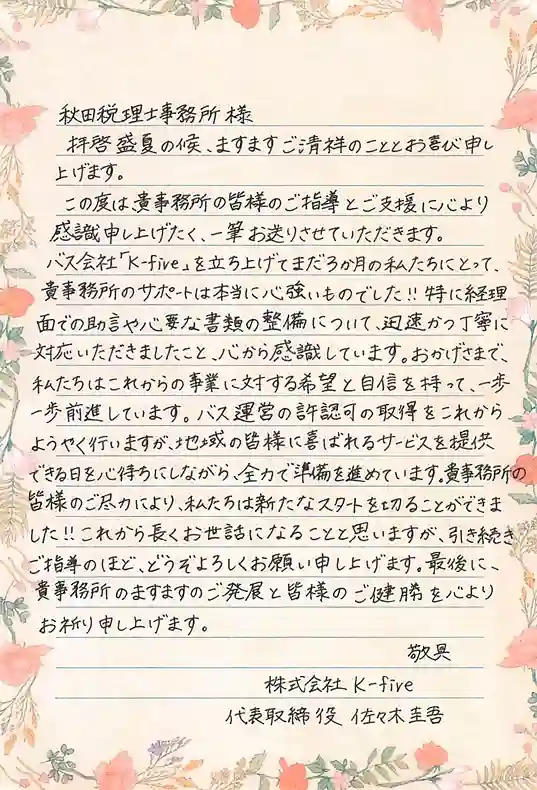 秋田税理士事務所様
拝啓 盛夏の候、ますますご清祥のこととお喜び申し
上げます。
この度は、貴事務所の皆様のご指導とご支援に心より
感識申し上げたく、一筆お送りさせていただきます。
バス会社「K-five」を立ち上げてまだ3か月の私たちにとって、
貴事務所のサポートは本当に心強いものでした!!特に経理
面での助言や心要な書類の整備について、迅速かつ丁寧に
対応いただきましたこと、心から感識しています。おかげさまで、
私たちはこれからの事業に対する希望と自信を持って、一歩
一歩前進しています。バス運営の許認可の取得をこれから
ようやく行いますが、地域の皆様に喜ばれるサービスを提供
できる日を心待ちにしながら、全力で準備を進めています。貴事務所の
皆様のご尽力により、私たちは新たなスタートを切ることができま
した!!これから長くお世話になることと思いますが、引き続き
ご指導のほど、どうぞよろしくお願い申し上げます。最後に、
貴事務所のますますのご発展と皆様のご健勝を心より
お祈り申し上げます。
敬具
株式会社 K-five
代表取締役 佐々木圭吾